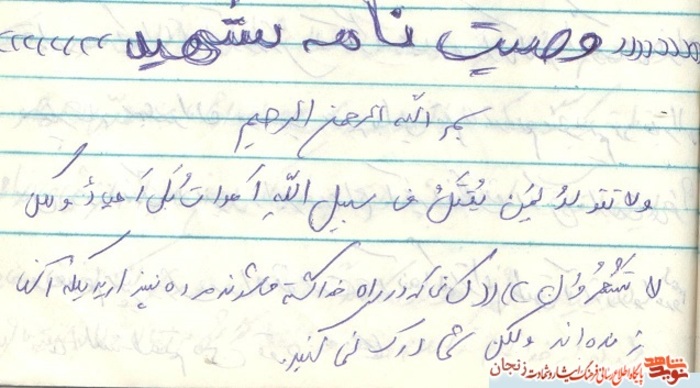 وصیت نامه شهید
بسم الله الرحمن الرحیم
ولا تقولوُ لِمَن یُقتَلُ فی سبیل اللّهِ اَموات بَل اَحیاءُ ولکن
لا تَشعُرون») (کسانی که در راه خدا کشته می‌شوند مرده نپندارید بلکه آنها
زنده‌اند ولکن شما درک نمی‌کنید.
پایگاه اطلاع رسانی فرهنگ ایثار و شهادت زنجان
نوید شاهد